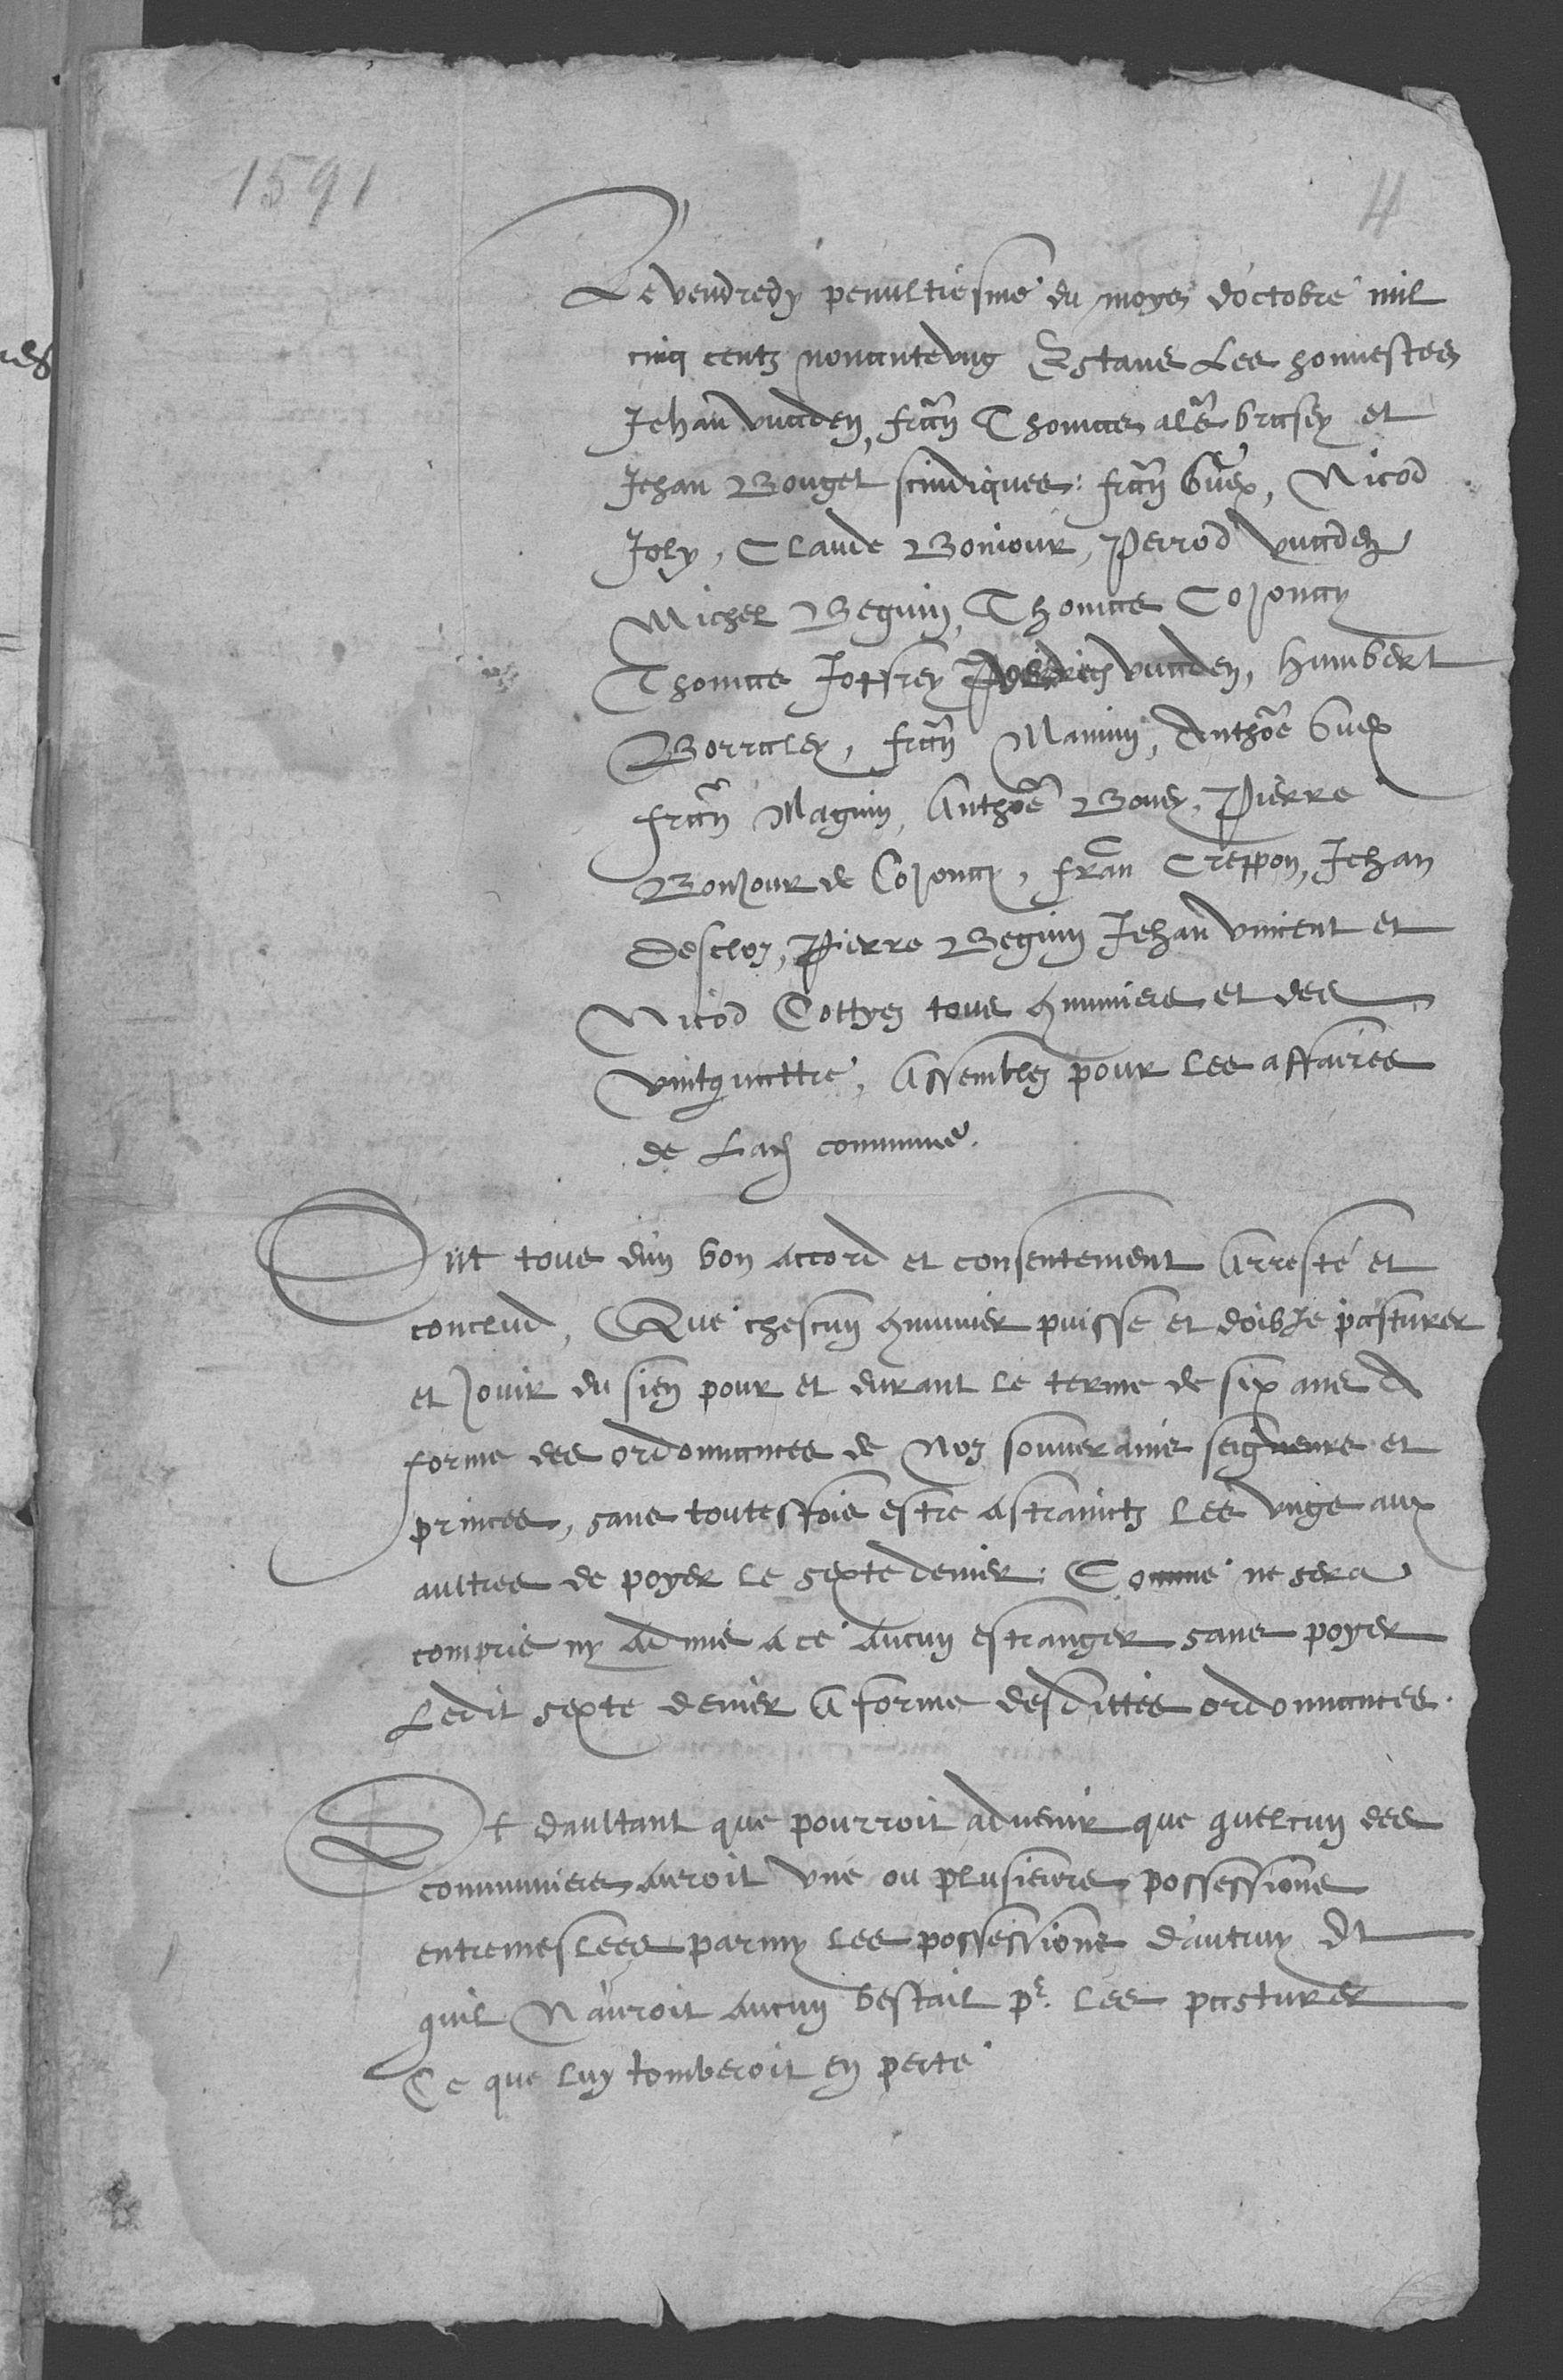 1591
4
Le vendredy penultiesme du moys d'octobre mil
cinq centz nonanteung Estans Les honnestes
Jehan vuaden, fran Thomas als brasey et
Jehan Bouget scindiques: fran Guex, Nicod
Joly, Claude Boniour, Perrod vuaden
Michel Beguin, Thomas Cojonay
Thomas Joffrey vuaden, humbert
Borraley, fran Manuin, Anthoe Guex
fran Maguin, Anthoe Bouey, Pierre
Bonjour de Cojonay, fran Creppon, Jehan
Descloz, Pierre Beguin Jehan vincent et
Nicod Cottyez tous communiers et des
vintquattre, Assemblez pour les affaires
de Lad commune.
Ont tous d'un bon accord et consentement Arresté et
conclud, Que chescun communier puisse et doibje pasturer
et Jouir du sien pour et durant le terme de six ans A
forme des ordonnances de Noz souverains seigneurs et
princes, sans touteffois estre astrainctz Les ungs aux
aultres de poyer le sexte denier: Comme ne sera
compris ny admis a ce aucun estranger sans poyer
Ledit sexte denier A forme desdittes ordonnances.
Et daultant que pourroit advenir que quelcun des
communiers auroit une ou plusieurs possessions
entremeslees parmy les possessions d'autruy Et
quil N'auroit aucun bestail pr. les pasturer
Ce que luy tomberoit en perte